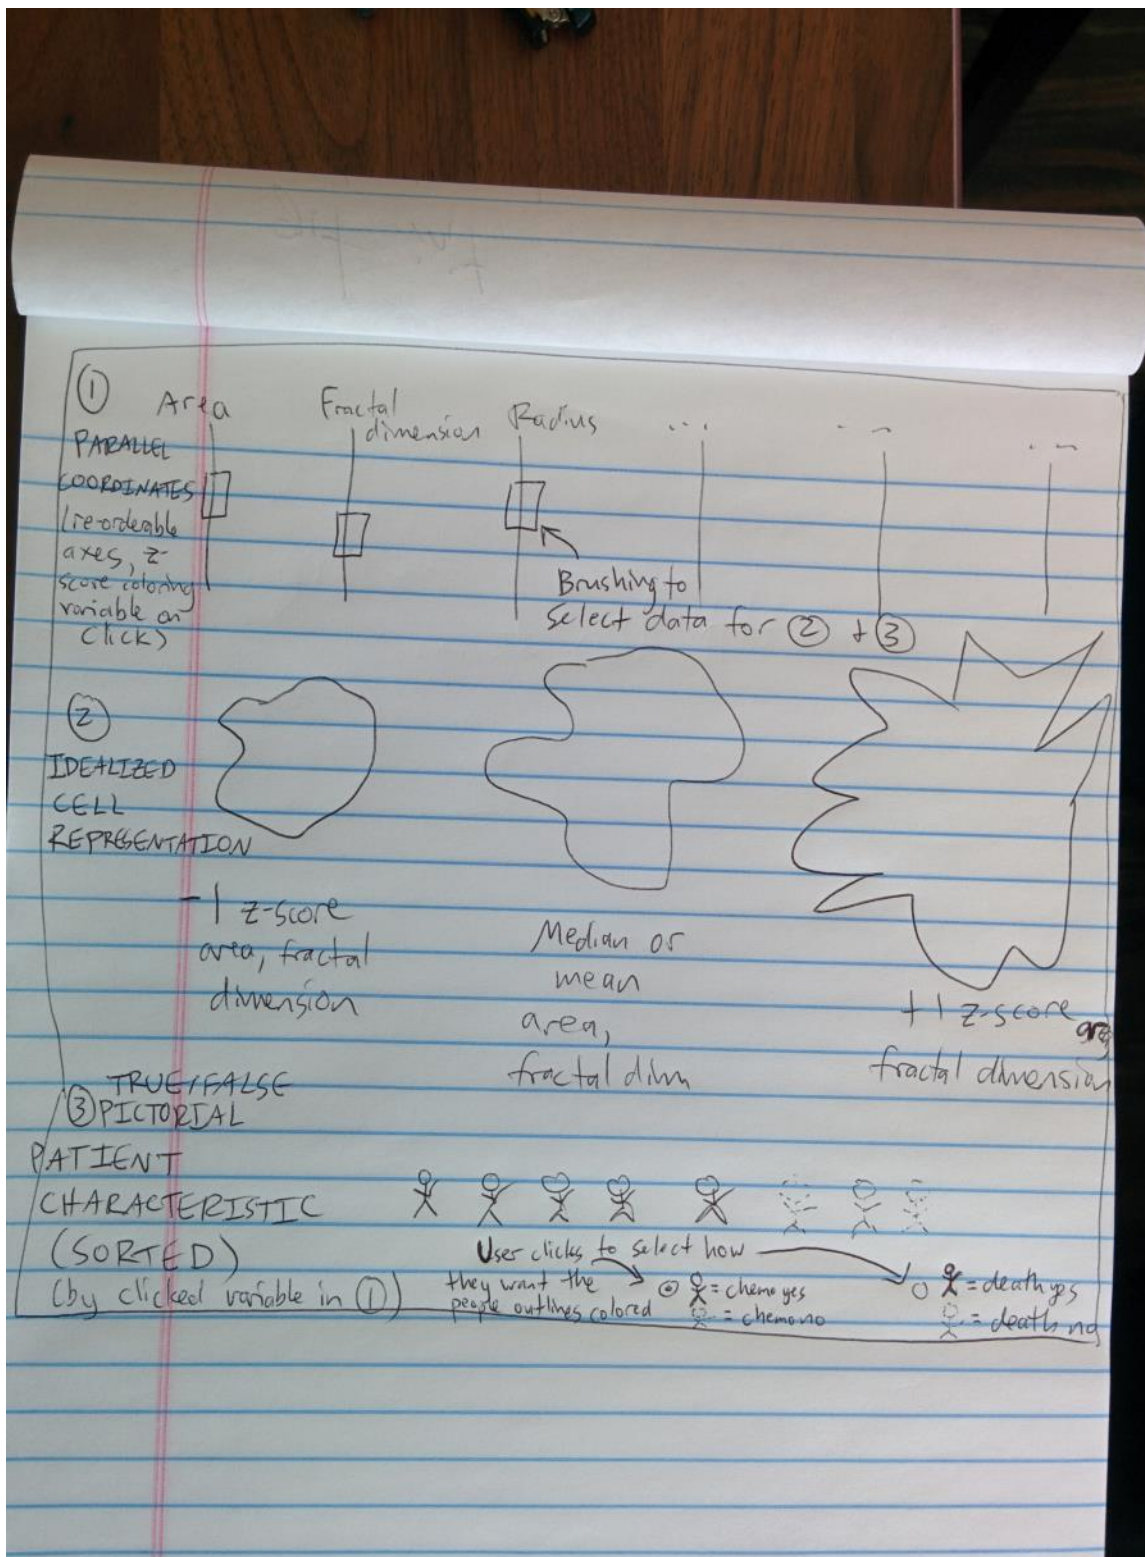 ①
Area
Fractal
dimension
Radius
...
...
...
PARALLEL
COORDINATES
(re-ordeable
axes, z-
score coloring
variable on
click)
Brushing to
select data for ② + ③
②
IDEALIZED
CELL
REPRESENTATION
-1 z-score
area, fractal
dimension
Median or
mean
area,
fractal dim
+1 z-score area,
fractal dimension
TRUE/FALSE
③ PICTORIAL
PATIENT
CHARACTERISTIC
(SORTED)
(by clicked variable in ①)
User clicks to select how
they want the
people outlines colored
= chemo yes
= chemo no
= death yes
= death no